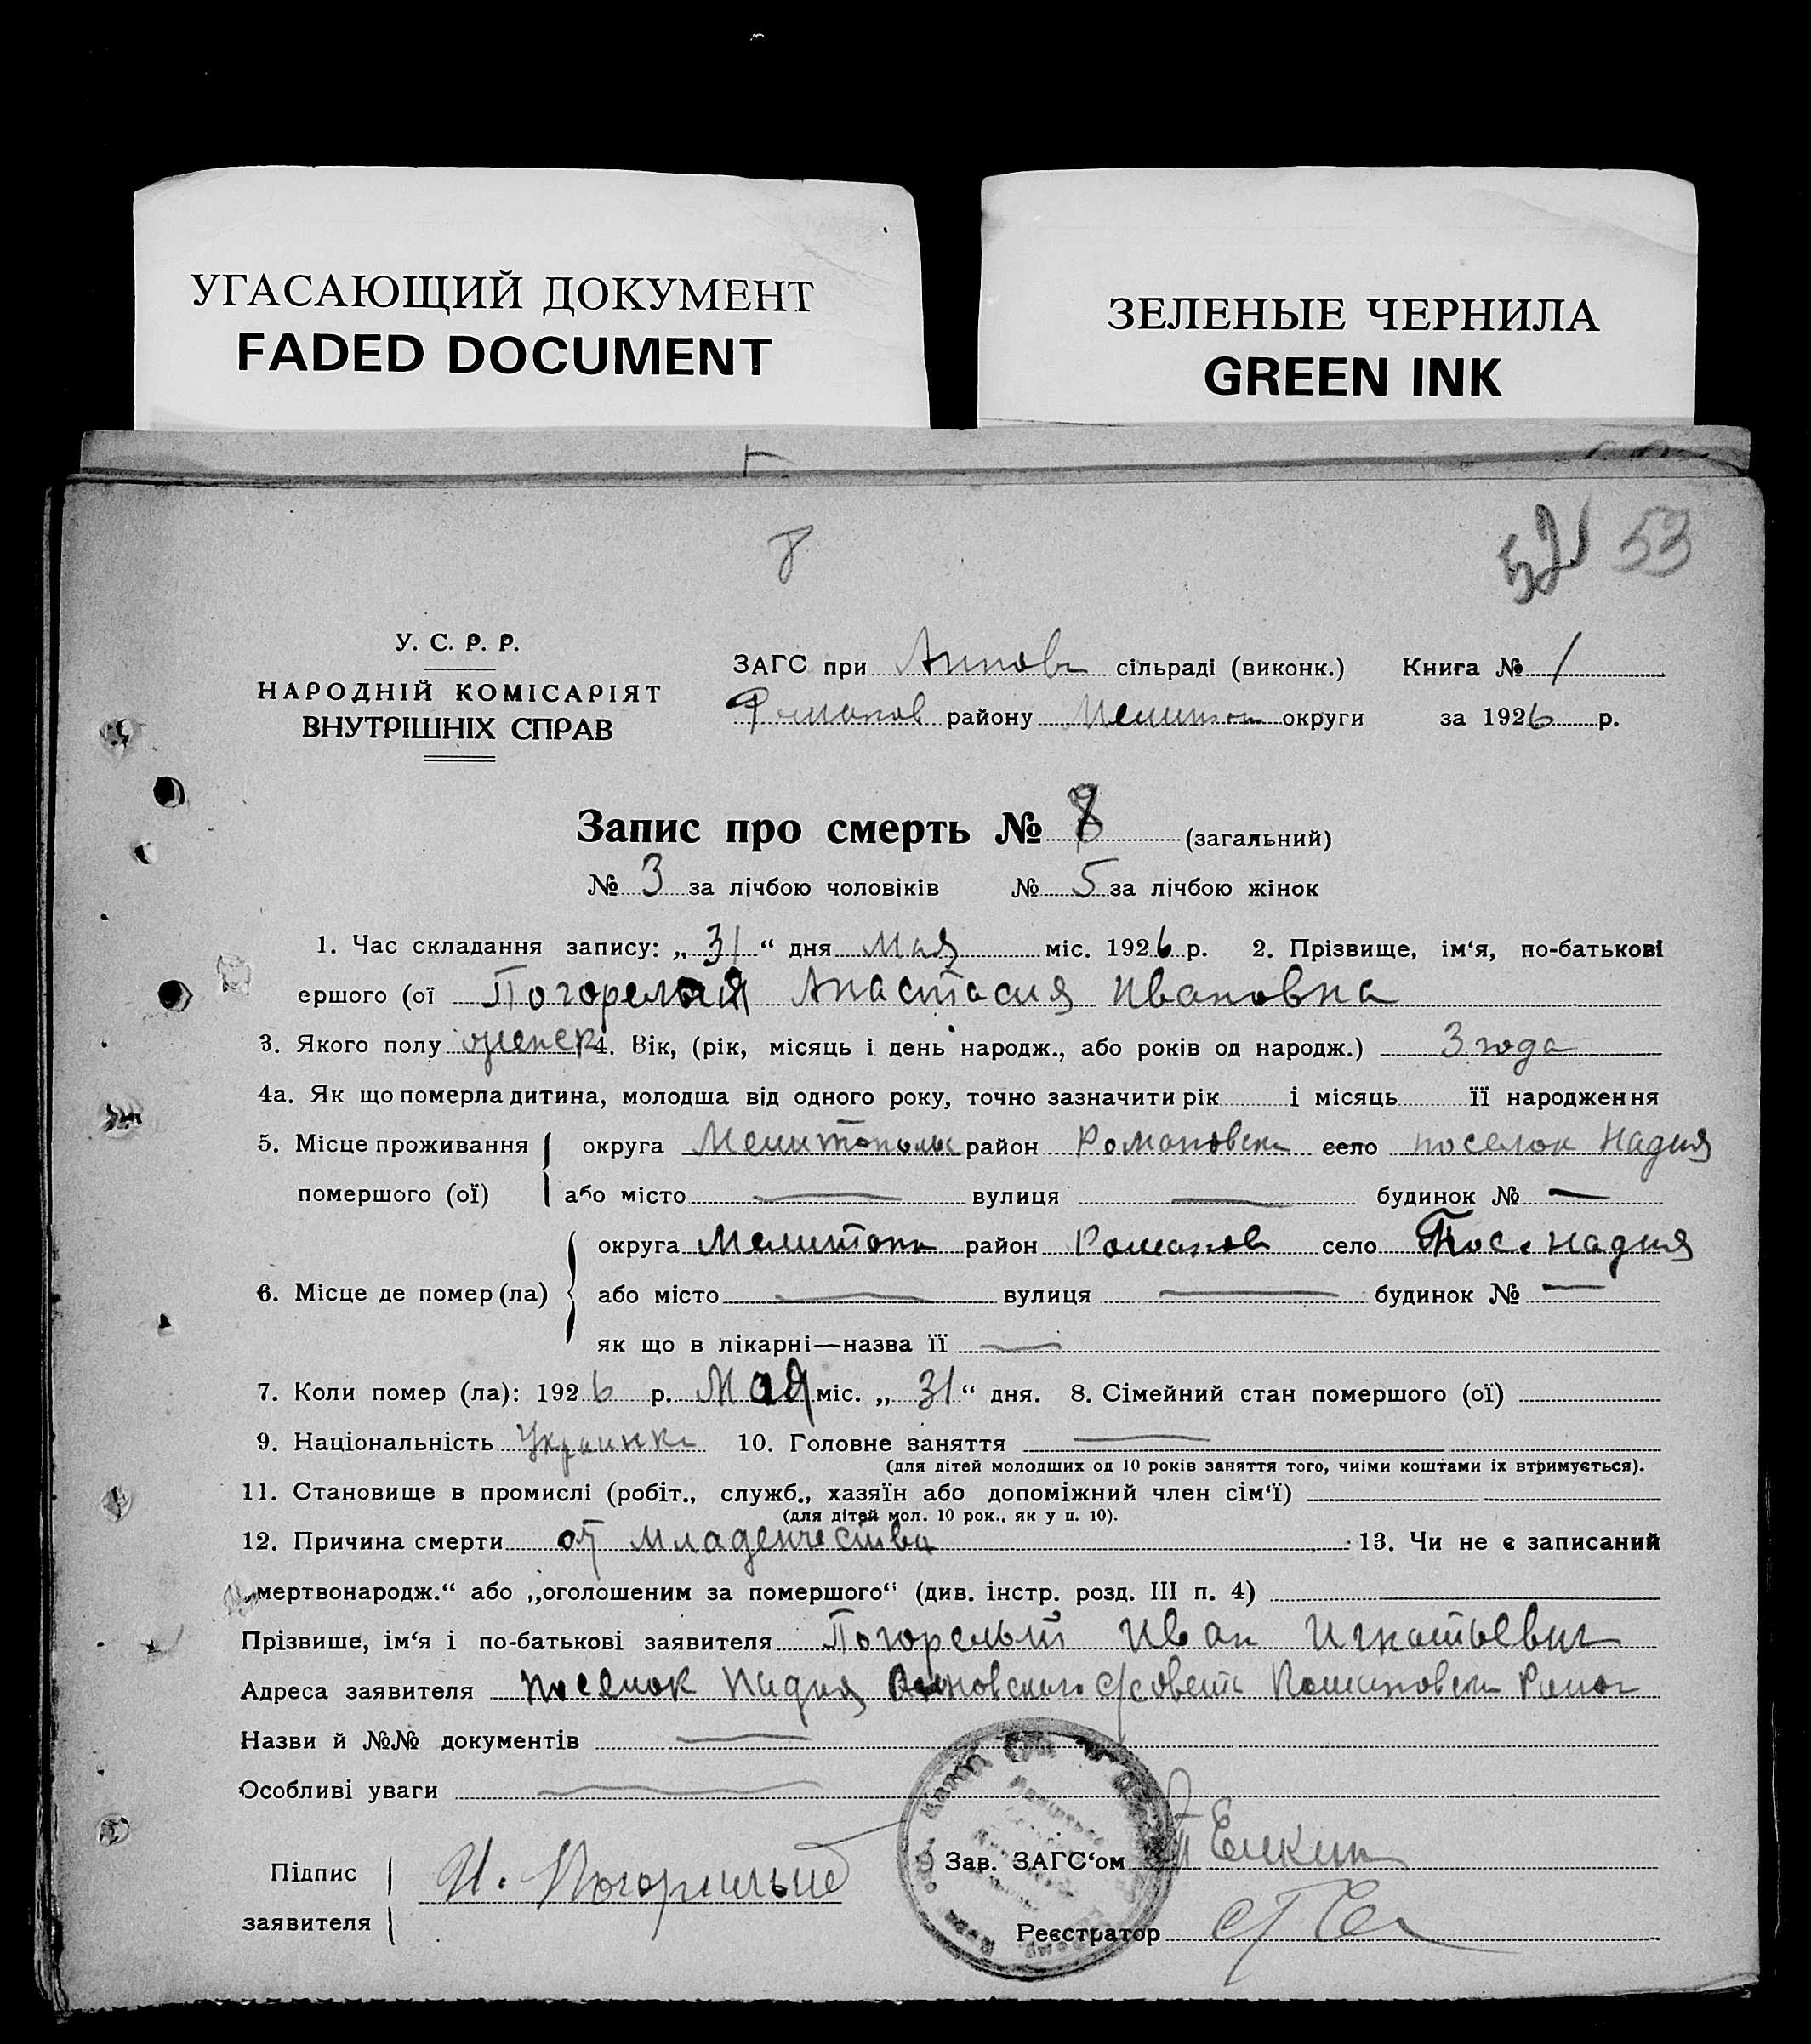 УГАСАЮЩИЙ ДОКУМЕНТ
FADED DOCUMENT
ЗЕЛЕНЫЕ ЧЕРНИЛА
GREEN INK
8
52 53
У. С. Р. Р.
НАРОДНІЙ КОМІСАРІЯТ
ВНУТРІШНІХ СПРАВ
ЗАГС при Аннов сільраді (виконк.) Книга № 1
Романов району Мелитоп округи за 1926 р.
Запис про смерть № 8 (загальний)
№ 3 за лічбою чоловіків № 5 за лічбою жінок
1. Час складання запису: „31“ дня мая міс. 1926 р. 2. Прізвище, ім‘я, по-батькові
ершого (ої Погорелая Анастасия Ивановна
3. Якого полу женск 4. Вік, (рік, місяць і день народж., або років од народж.) 3 года
4а. Як що померла дитина, молодша від одного року, точно зазначити рік і місяць її народження
5. Місце проживання округа Мелитополь район Романовск село поселок Надия
помершого (ої) або місто — вулиця — будинок № —
6. Місце де помер (ла) округа Мелитоп район Романов село Пос. Надия
або місто — вулиця — будинок № —
як що в лікарні—назва її —
7. Коли помер (ла): 1926 р. Мая міс. „31“ дня. 8. Сімейний стан помершого (ої)
9. Національність Украинка 10. Головне заняття —
(для дітей молодших од 10 років заняття того, чиїми коштами їх втримується).
11. Становище в промислі (робіт., служб., хазяїн або допоміжний член сім‘ї)
(для дітей мол. 10 рок., як у п. 10).
12. Причина смерти от младенчества 13. Чи не є записаний
„мертвонародж.“ або „оголошеним за помершого“ (див. інстр. розд. III п. 4)
Прізвише, ім‘я і по-батькові заявителя Погорелый Иван Игнатьевич
Адреса заявителя поселок Надия Анновского с/совета Романовск Район
Назви й №№ документів —
Особливі уваги —
Підпис заявителя И. Погорелый
Зав. ЗАГС‘ом
Реєстратор